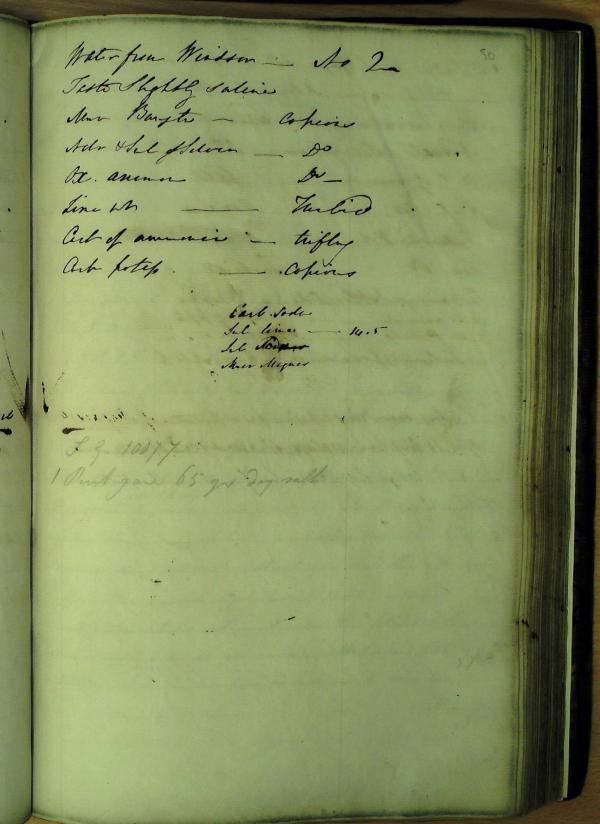 50
Water from Windsor — No 2
Taste Slightly saline
Mur Barytes — Copious
Nitr & Sul of Silver — Do
Ox. ammon Do —
Lime Wr — Turbid
Carb of ammonia — trifling
Carb potass — Copious
Carb. Soda
Sul lime — 14.5
Sul
Mur Magnes
S G 10077
1 Pint gave 65 grs dry salt